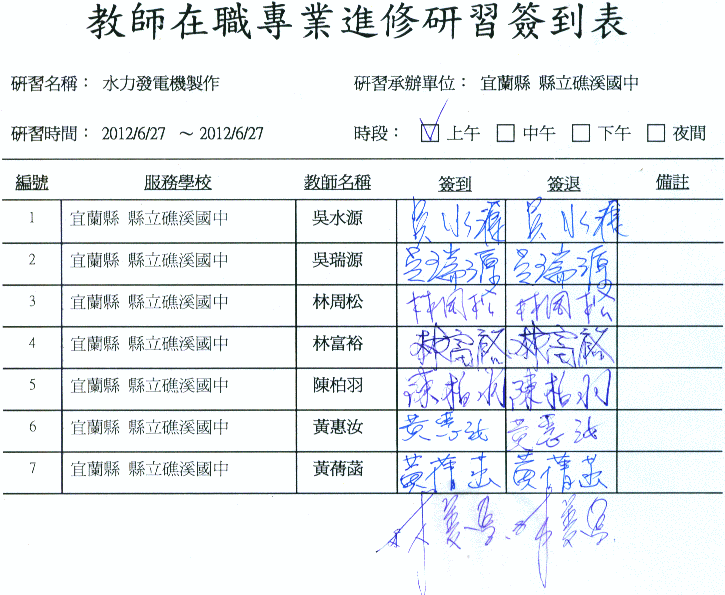 教師在職專業進修研習簽到表
研習名稱： 水力發電機製作 研習承辦單位： 宜蘭縣 縣立礁溪國中
研習時間： 2012/6/27 ～ 2012/6/27 時段： ☑ 上午 □ 中午 □ 下午 □ 夜間
編號 服務學校 教師名稱 簽到 簽退 備註
1 宜蘭縣 縣立礁溪國中 吳水源 吳水源 吳水源
2 宜蘭縣 縣立礁溪國中 吳瑞源 吳瑞源 吳瑞源
3 宜蘭縣 縣立礁溪國中 林周松 林周松 林周松
4 宜蘭縣 縣立礁溪國中 林富裕 林富裕 林富裕
5 宜蘭縣 縣立礁溪國中 陳柏羽 陳柏羽 陳柏羽
6 宜蘭縣 縣立礁溪國中 黃惠汝 黃惠汝 黃惠汝
7 宜蘭縣 縣立礁溪國中 黃蒨菡 黃蒨菡 黃蒨菡